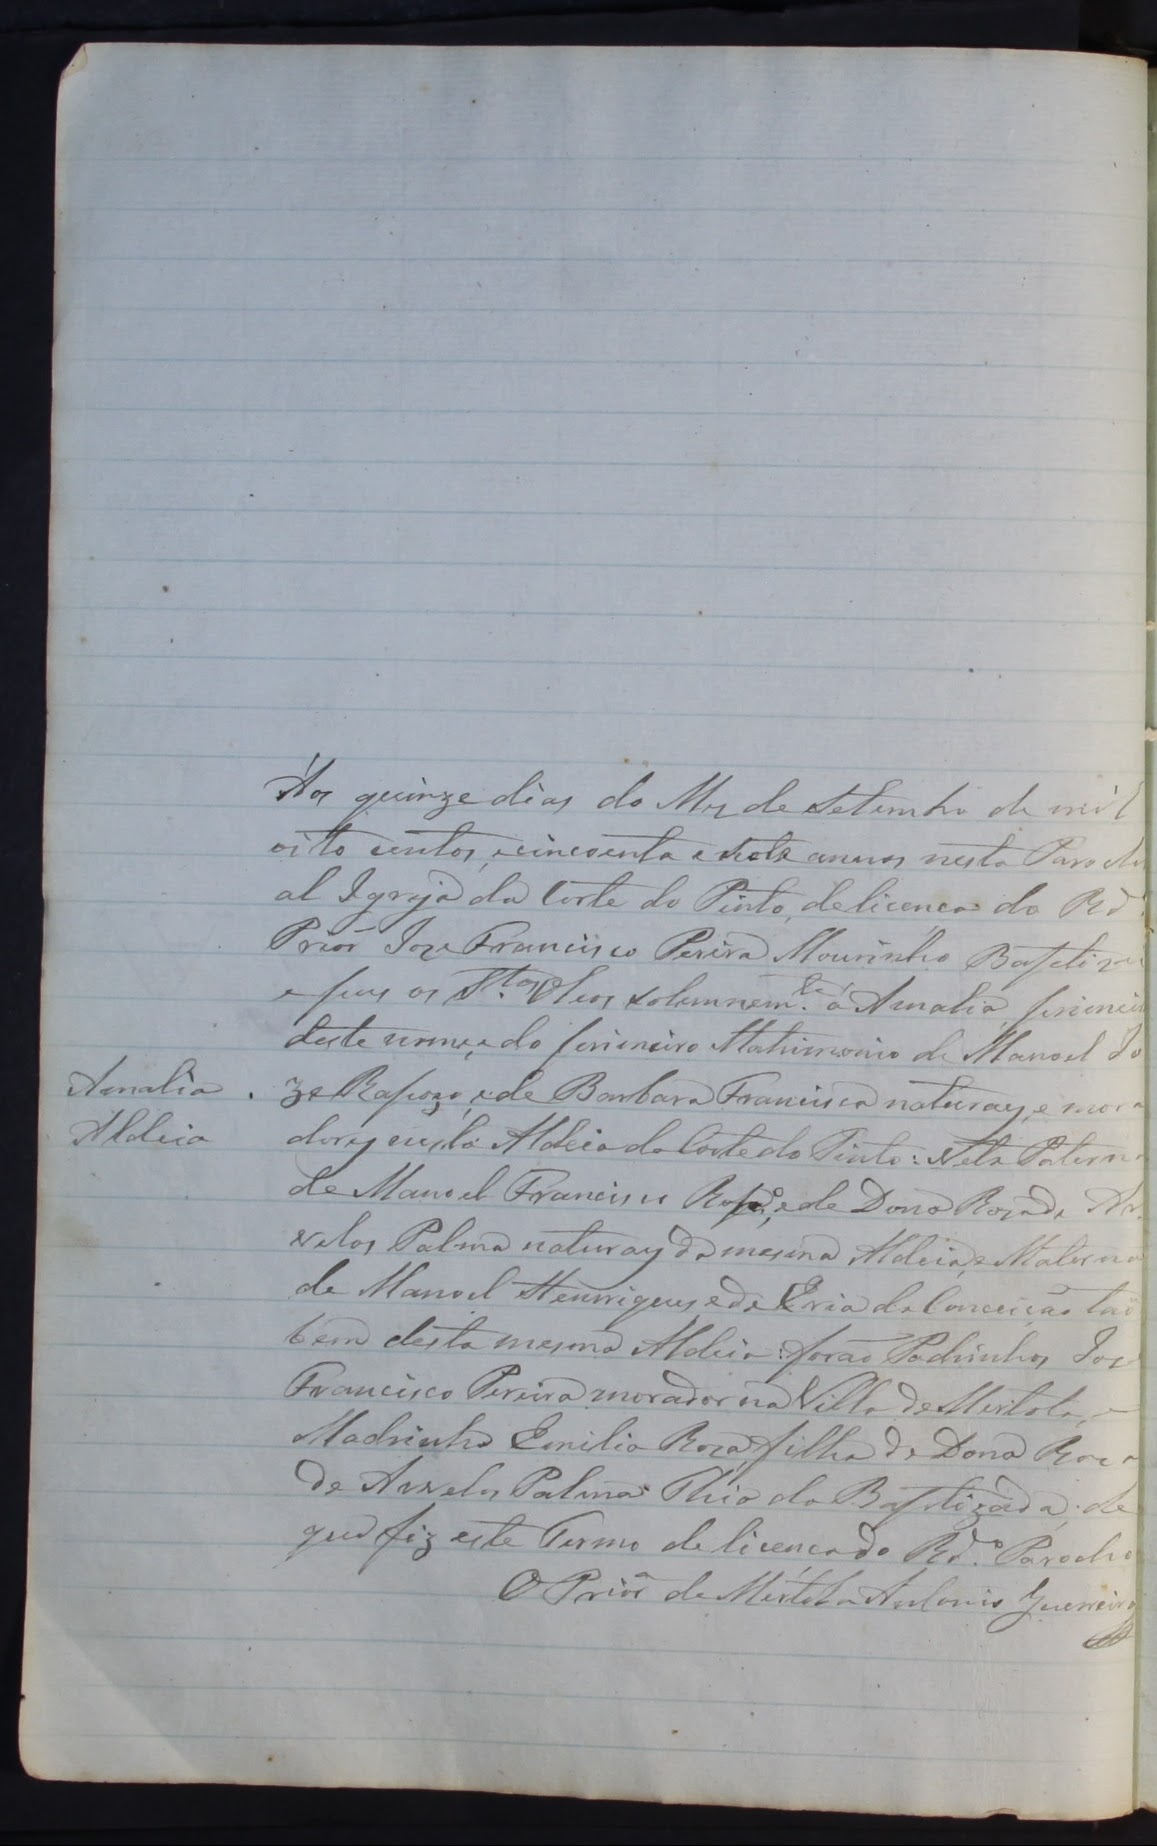 Aos quinze dias do Mez de Setembro de mil
oito centos, e cincoenta e sete annos nesta Parochi
al Igreja da Corte do Pinto, de licenca do Rd.º
Prior Joze Francisco Pereira Mourinho Baptize
e pus os S.tos Oleos solemnem.te á Amalia primeira
deste nome, e do primeiro Matrimonio de Manoel Jo
Amalia
ze Rapozo, e de Barbara Francisca naturaes, e mora
Aldeia
dores nesta Aldeia da Corte do Pinto: Neta Paterna
de Manoel Francisco e de Dona Roza de Ar
velos Palma naturaes da mesma Aldeia, e Materna
de Manoel Henriques e de da Conceição tão
bem desta mesma Aldeia: forão Padrinhos Joze
Francisco Pereira morador na Villa de Mertola, e
Madrinha Emilia Roza, filha de Dona Roza
de Arvelos Palma Thia da Baptizada, de
que fiz este Termo de licenca do Rd.º Parocho
O Prior de Mertola Antonio Guerreiro